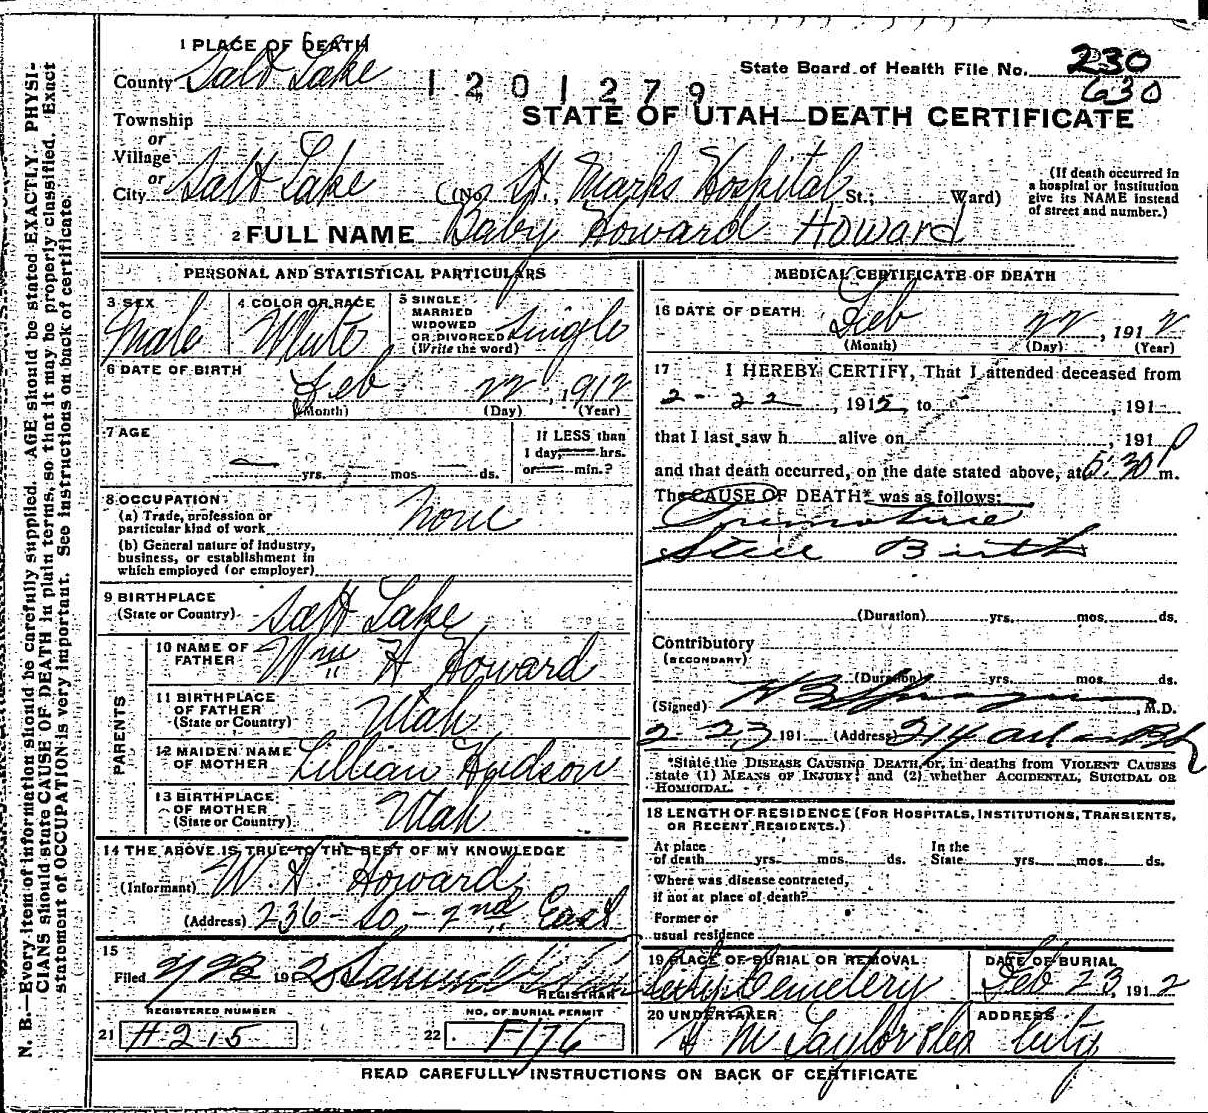 1 PLACE OF DEATH
County Salt Lake
1201279
State Board of Health File No. 230
630
STATE OF UTAH—DEATH CERTIFICATE
Township
or
Village
or
City Salt Lake (No. St. Marks Hospital St.; Ward)
(If death occurred in a hospital or institution give its NAME instead of street and number.)
2 FULL NAME Baby Howard Howard
PERSONAL AND STATISTICAL PARTICULARS
3 SEX Male
4 COLOR OR RACE White
5 SINGLE MARRIED WIDOWED OR DIVORCED (Write the word) Single
6 DATE OF BIRTH
Feb 22, 1912
(Month) (Day) (Year)
7 AGE
yrs. mos. ds.
If LESS than
1 day, hrs.
or min.?
8 OCCUPATION
(a) Trade, profession or
particular kind of work None
(b) General nature of industry,
business, or establishment in
which employed (or employer)
9 BIRTHPLACE
(State or Country) Salt Lake
PARENTS
10 NAME OF
FATHER Wm H Howard
11 BIRTHPLACE
OF FATHER
(State or Country) Utah
12 MAIDEN NAME
OF MOTHER Lillian Hudson
13 BIRTHPLACE
OF MOTHER
(State or Country) Utah
14 THE ABOVE IS TRUE TO THE BEST OF MY KNOWLEDGE
(Informant) W. H. Howard
(Address) 236 - So. - 2nd East
15
Filed 2/23 1912
REGISTRAR
REGISTERED NUMBER
21 H215
NO. OF BURIAL PERMIT
22 F176
MEDICAL CERTIFICATE OF DEATH
16 DATE OF DEATH
Feb 22, 1912
(Month) (Day) (Year)
17 I HEREBY CERTIFY, That I attended deceased from
2-22, 1912 to , 191
that I last saw h alive on , 191
and that death occurred, on the date stated above, at 5:30 P m.
The CAUSE OF DEATH* was as follows:
Premature
Still Birth
(Duration) yrs. mos. ds.
Contributory
(SECONDARY)
(Duration) yrs. mos. ds.
(Signed) , M.D.
2 23 191 (Address) 214
*State the DISEASE CAUSING DEATH, or, in deaths from VIOLENT CAUSES
state (1) MEANS OF INJURY; and (2) whether ACCIDENTAL, SUICIDAL OR
HOMICIDAL.
18 LENGTH OF RESIDENCE (FOR HOSPITALS, INSTITUTIONS, TRANSIENTS,
OR RECENT RESIDENTS.)
At place In the
of death yrs. mos. ds. State yrs. mos. ds.
Where was disease contracted,
if not at place of death?
Former or
usual residence
19 PLACE OF BURIAL OR REMOVAL
City Cemetery
DATE OF BURIAL
Feb 23, 1912
20 UNDERTAKER
ADDRESS
City
READ CAREFULLY INSTRUCTIONS ON BACK OF CERTIFICATE
N. B.—Every item of information should be carefully supplied. AGE should be stated EXACTLY. PHYSI-
CIANS should state CAUSE OF DEATH in plain terms, so that it may be properly classified. Exact
statement of OCCUPATION is very important. See instructions on back of certificate.